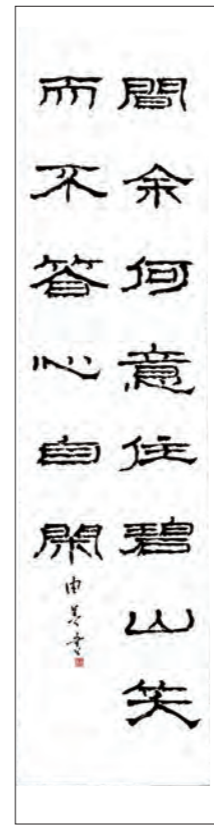 問余何意住碧山笑
而不答心自閑
由美書